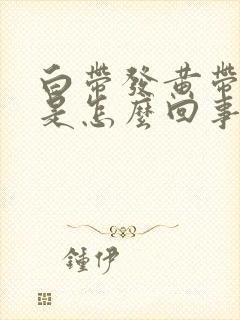 白帶發黃帶
是怎麼回事
鍾伊